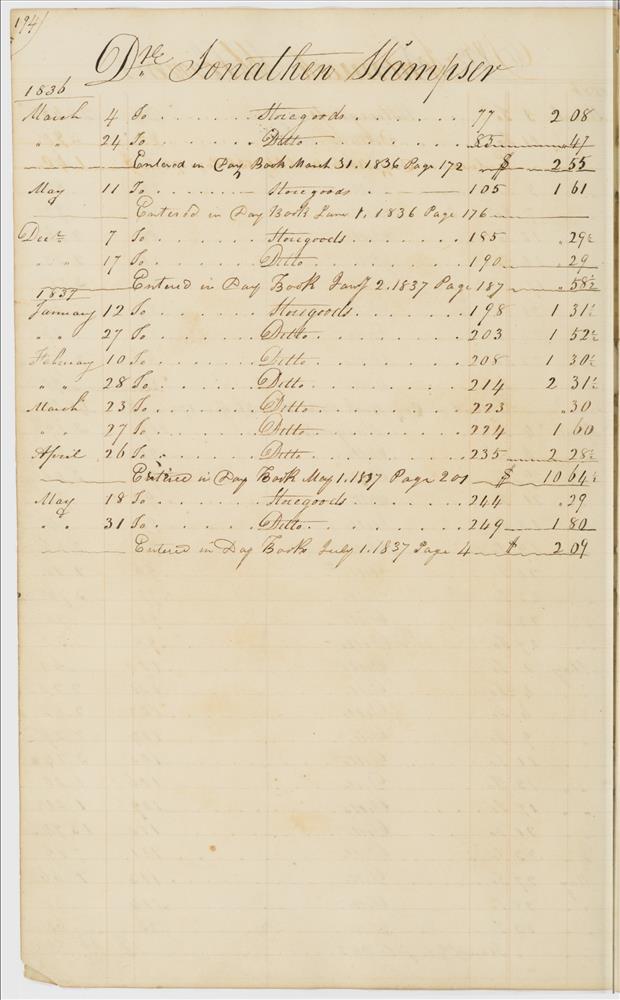 194
Dr. Jonathen Stampser
1836
March 4 To . . . . . . Storegoods . . . . . . 77 2 08
" " 24 To . . . . . . Ditto . . . . . . 85 " 47
Entered in Day Book March 31. 1836 Page 172 $ 2 55
May 11 To . . . . . . Storegoods . . . 105 1 61
Entered in Day Book June 1, 1836 Page 176
Decr 7 To . . . . . . Storegoods . . . . . . 185 " 29½
" " 17 To . . . . . . Ditto . . . . . . 190 " 29
Entered in Day Book Jany 2. 1837 Page 187 " 58½
1837
January 12 To . . . . . . Storegoods . . . . . . 198 1 31½
" " 27 To . . . . . . Ditto . . . . . . 203 1 52½
February 10 To . . . . . . Ditto . . . . . . 208 1 30½
" " 28 To . . . . . . Ditto . . . . . . 214 2 31½
March 23 To . . . . . . Ditto . . . . . . 223 " 30
" " 27 To . . . . . . Ditto . . . . . . 224 1 60
April 26 To . . . . . . Ditto . . . . . . 235 2 28½
Entered in Day Book May 1. 1837 Page 201 $ 10 64½
May 18 To . . . . . . Storegoods . . . . . . 244 " 29
" " 31 To . . . . . . Ditto . . . . . . 249 1 80
Entered in Day Book July 1. 1837 Page 4 $ 2 09